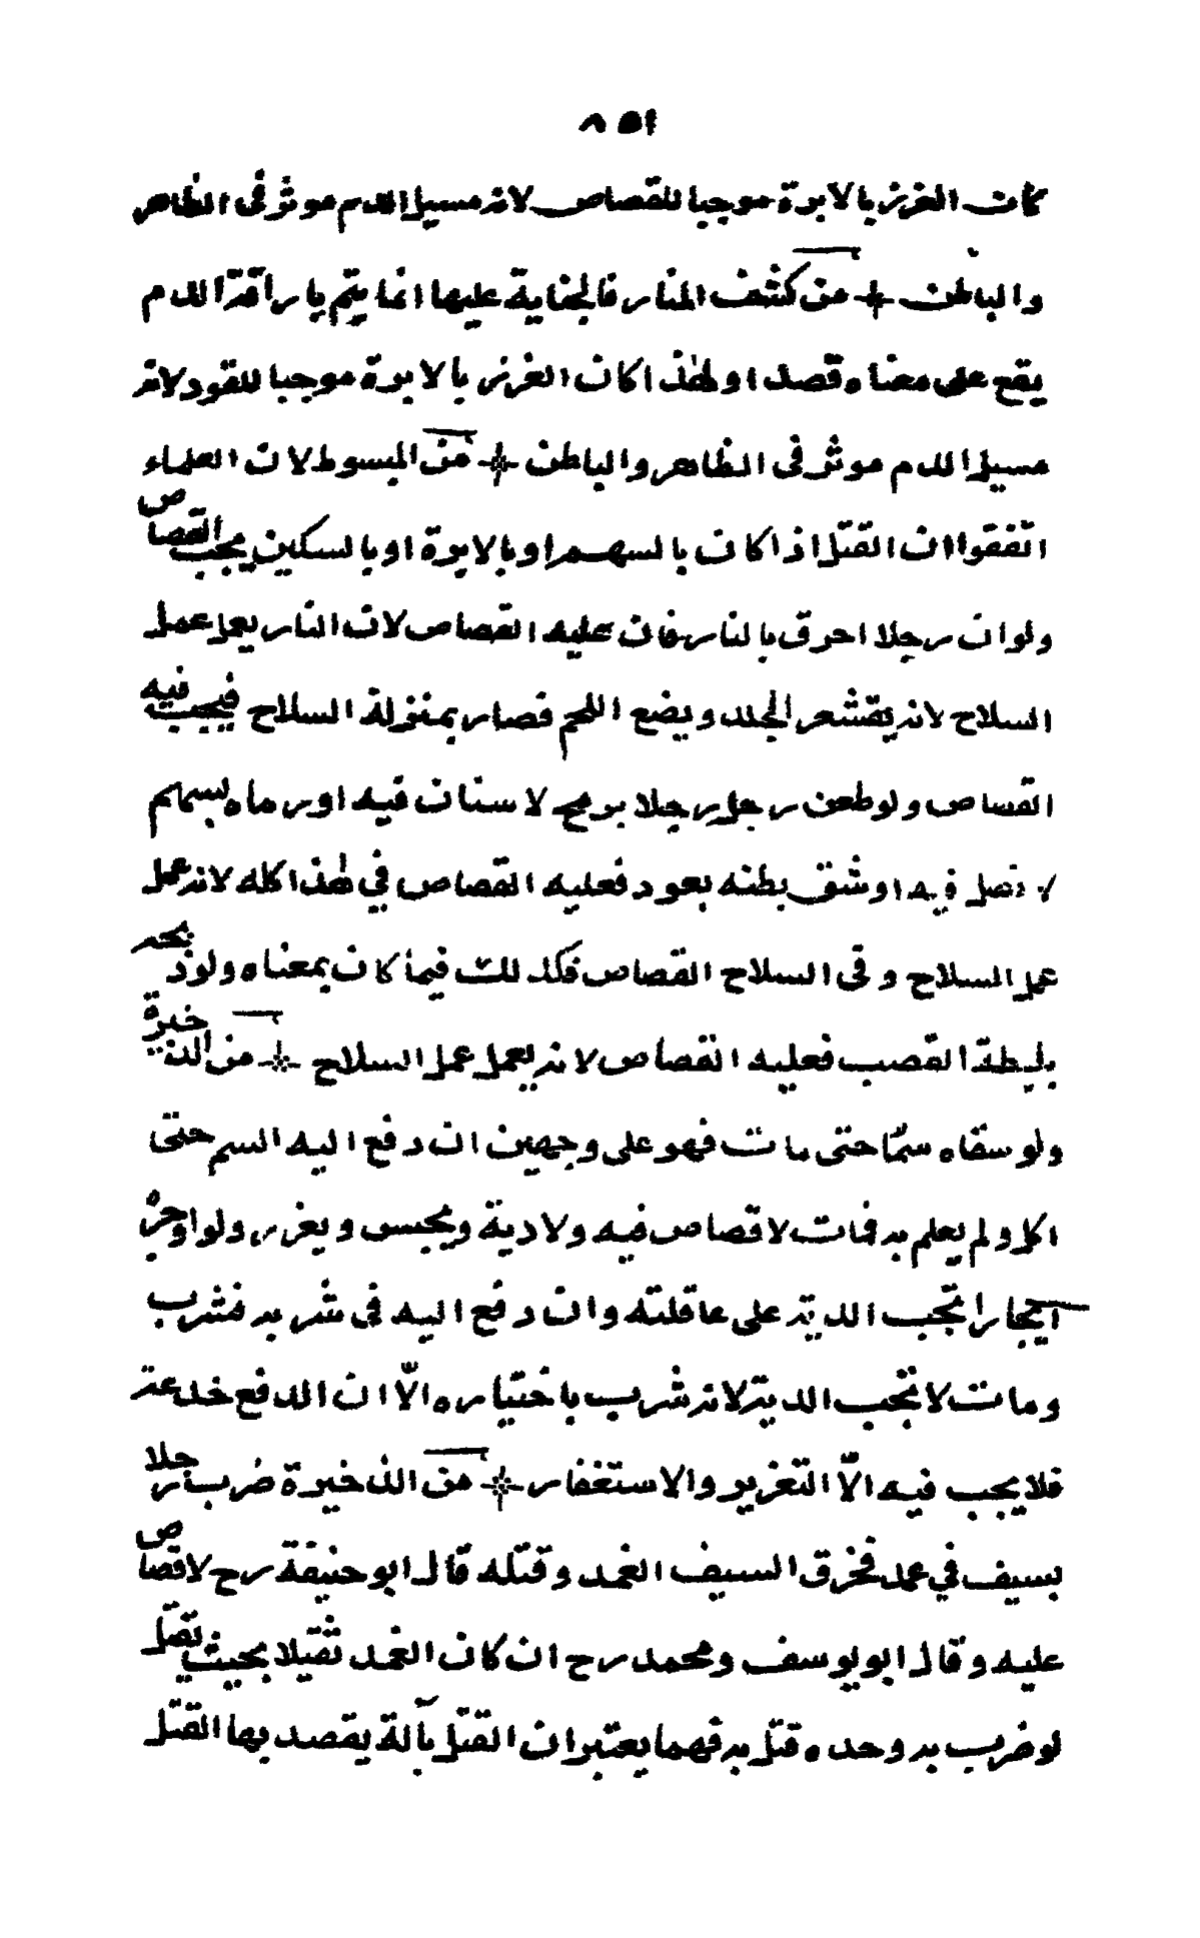 ٨٥١
كان الغرز بالابرة موجبا للقصاص لانه مسيل الدم موثر فى الظاهر
والباطن من كشف المنار فالجناية عليها انما يتم باراقة الدم
يقع على معناه قصدا ولهذا كان الغرز بالابرة موجبا للقود لانه
مسيل الدم موثر فى الظاهر والباطن من المبسوط لان العلماء
اتفقوا ان القتل اذا كان بالسهم او بالابرة او بالسكين يجب القصاص
ولو ان رجلا احرق بالنار فان عليه القصاص لان النار يعمل عمل
السلاح لانه يقشعر الجلد ويضع اللحم فصار بمنزلة السلاح فيجب فيه
القصاص ولو طعن رجل رجلا برمح لا سنان فيه او رماه بسهم
لا نصل فيه او شق بطنه بعود فعليه القصاص في هذا كله لانه عمل
عمل السلاح وفى السلاح القصاص فكذلك فيما كان بمعناه ولو ذبحه
بليطة القصب فعليه القصاص لانه يعمل عمل السلاح من الذخيرة
ولو سقاه سمّا حتى مات فهو على وجهين ان دفع اليه السم حتى
اكل ولم يعلم به فمات لا قصاص فيه ولا دية ويحبس ويعزر ولو اوجره
ايجارا تجب الدية على عاقلته وان دفع اليه فى شربه فشرب
ومات لا تجب الدية لانه شرب باختياره الّا ان الدفع خدعة
فلا يجب فيه الّا التعزير والاستغفار من الذخيرة ضرب رجلا
بسيف في غمد فخرق السيف الغمد وقتله قال ابو حنيفة رح لا قصاص
عليه وقال ابو يوسف ومحمد رح ان كان الغمد ثقيلا بحيث يقتل
لو ضرب به وحده قتل به فهما يعتبران القتل بآلة يقصد بها القتل